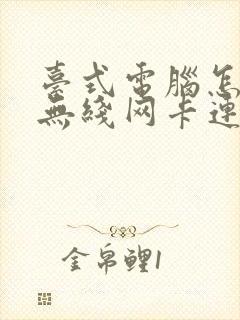 臺式電腦怎
無綫网卡連
金帛鲤1